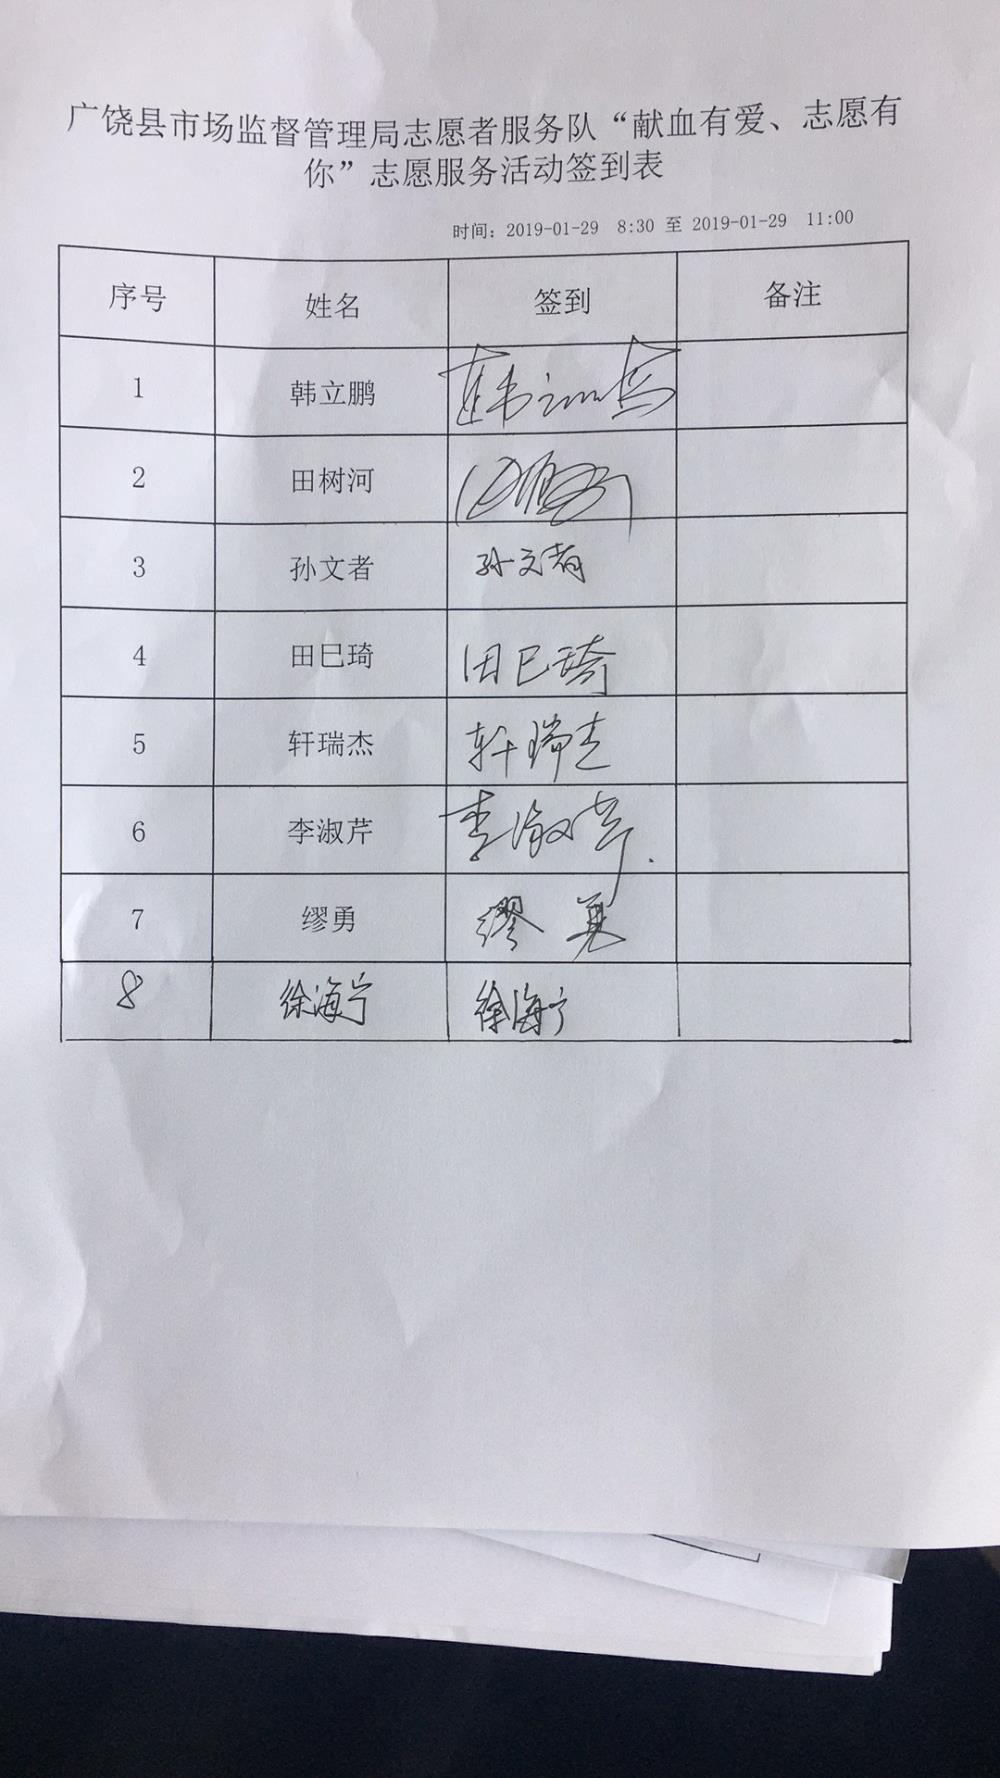 广饶县市场监督管理局志愿者服务队“献血有爱、志愿有
你”志愿服务活动签到表
时间：2019-01-29 8:30 至 2019-01-29 11:00
序号 姓名 签到 备注
1 韩立鹏 韩立鹏
2 田树河
3 孙文者 孙文者
4 田巳琦 田巳琦
5 轩瑞杰 轩瑞杰
6 李淑芹 李淑芹
7 缪勇 缪勇
8 徐海宁 徐海宁